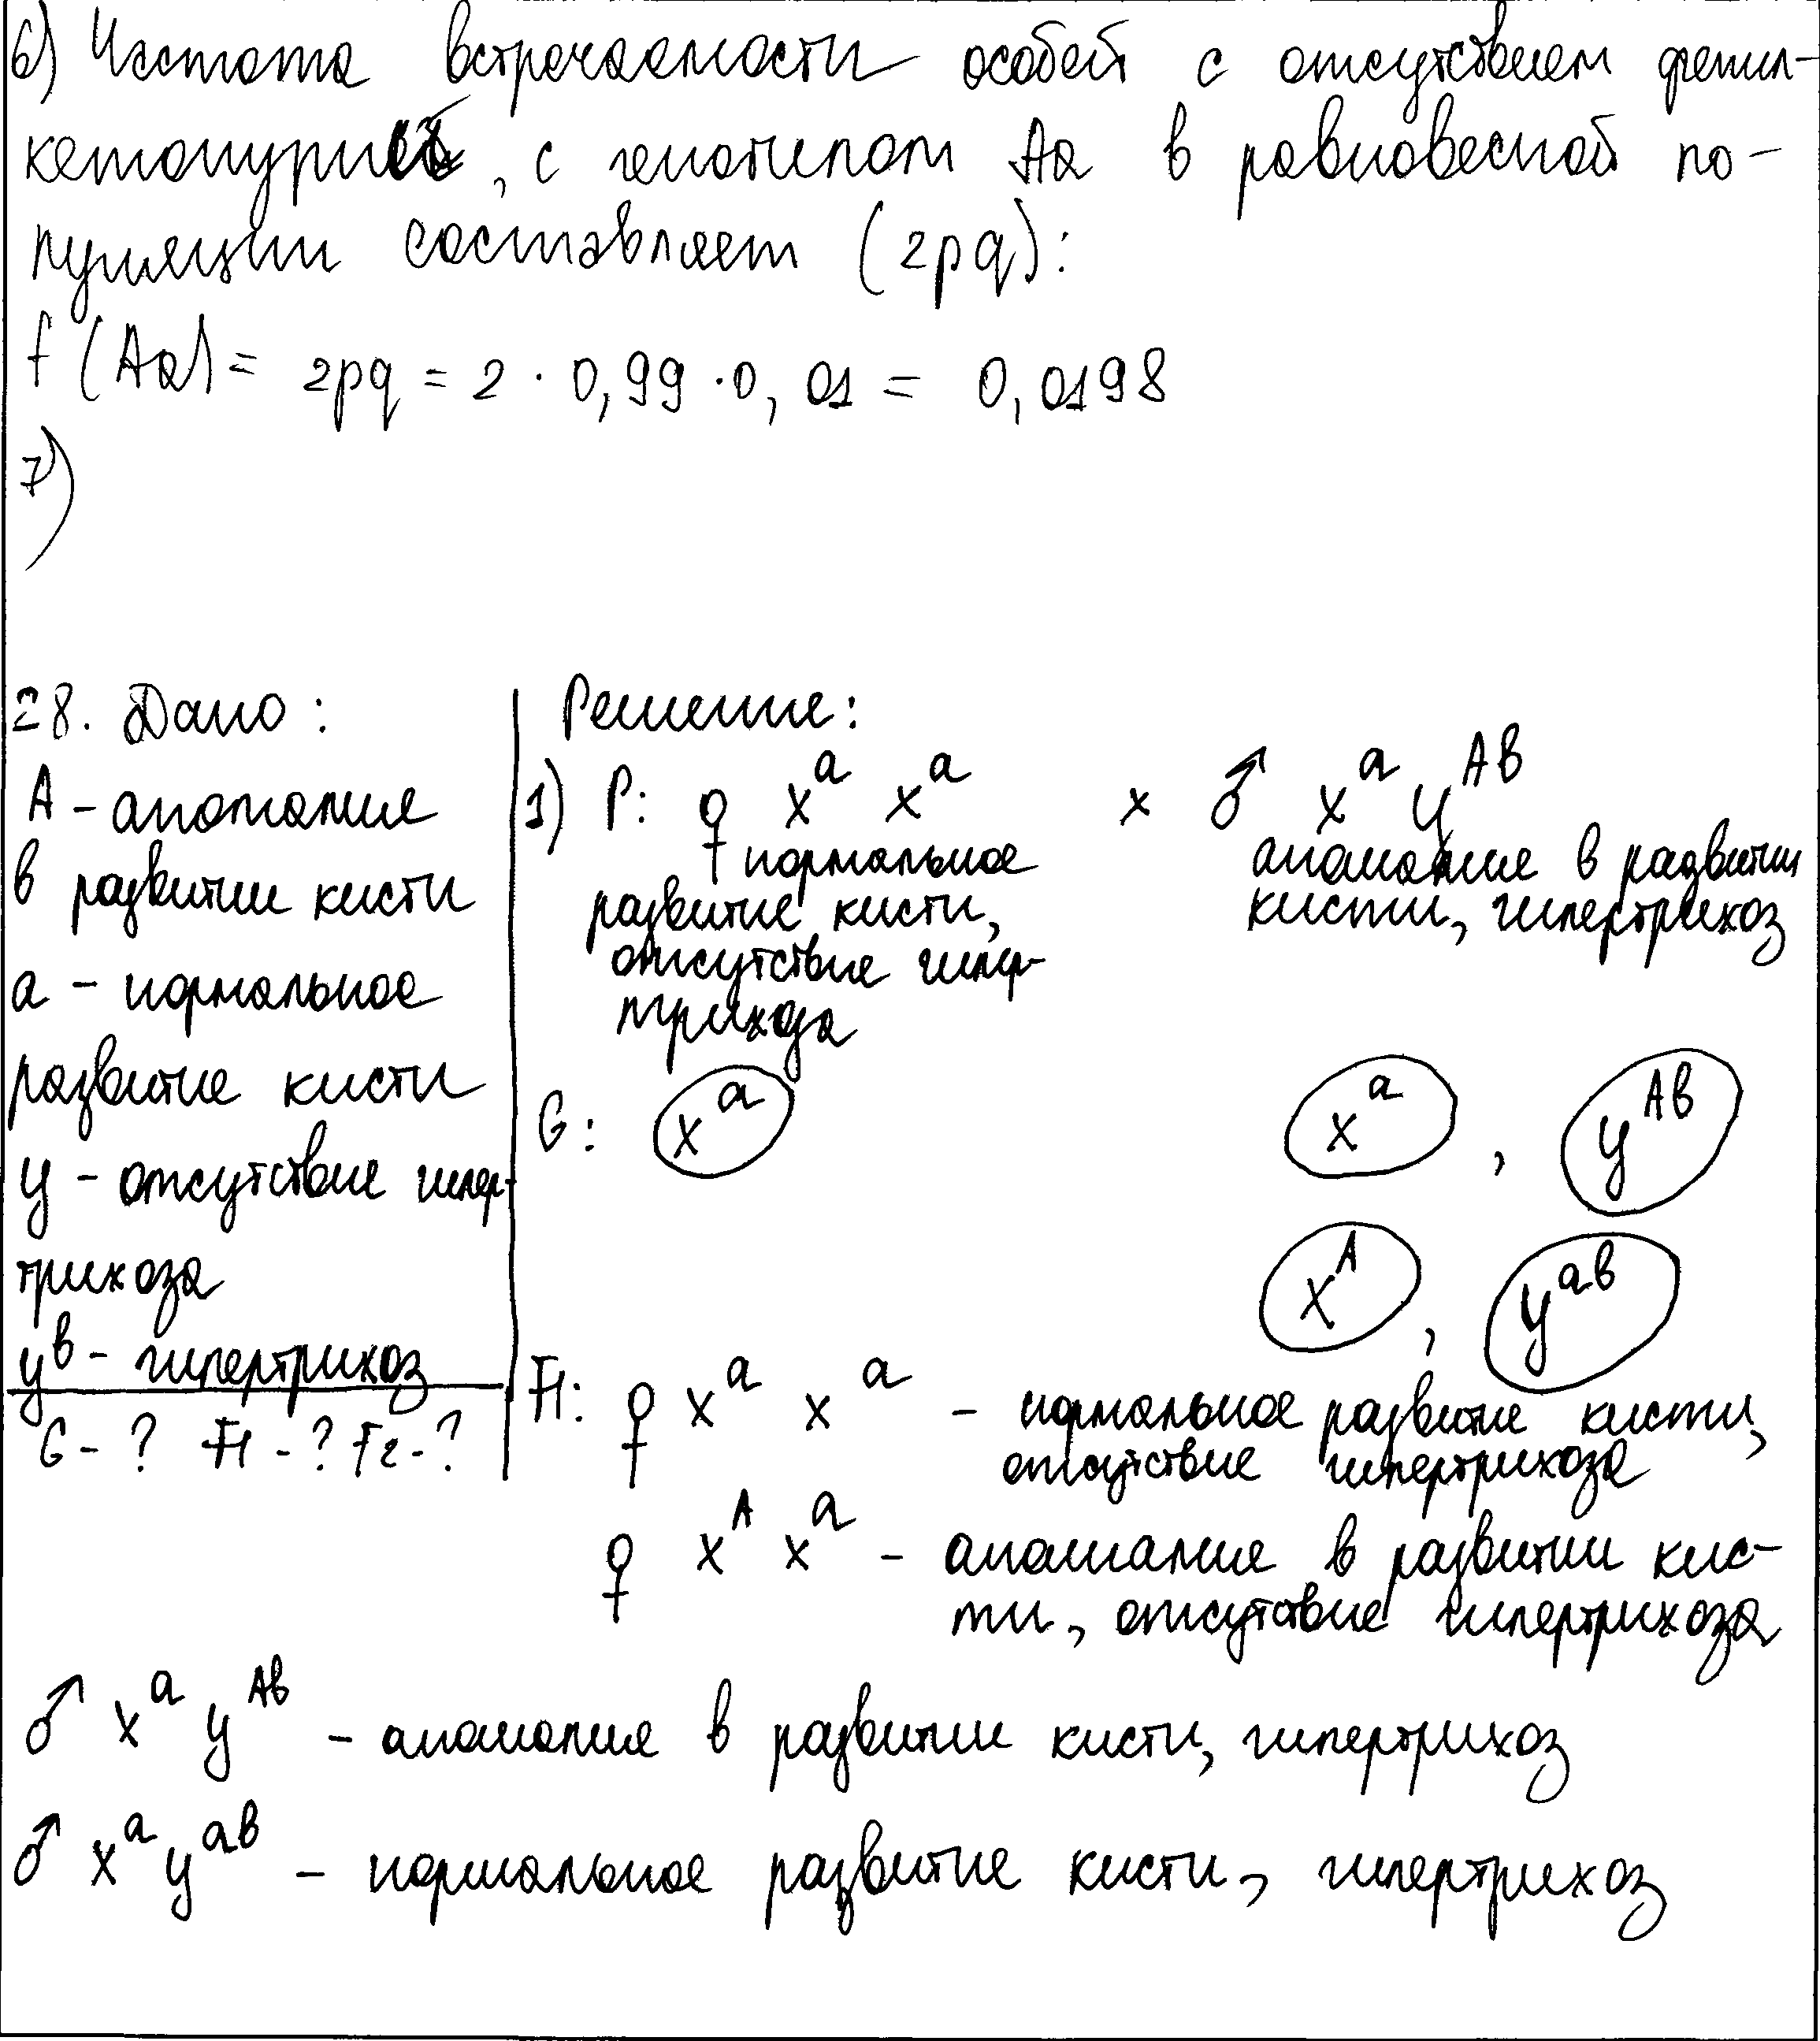 6) Частота встречаемости особей с отсутствием фенил-
кетонурии, с генотипом Аа в равновесной по-
пуляции составляет (2pq):
f (Aa) = 2pq = 2 · 0,99 · 0,01 = 0,0198
7)
28. Дано:
А - аномалия
в развитии кисти
а - нормальное
развитие кисти
y - отсутствие гипер-
трихоза
yᵇ - гипертрихоз
G - ? F1 - ? F2 - ?
Решение:
1) P: ♀ Xᵃ Xᵃ x ♂ Xᵃ Yᴬᵇ
нормальное развитие кисти, отсутствие гипер-
трихоза
аномалие в развитии
кисти, гипертрихоз
G: Xᵃ Xᵃ , Yᴬᵇ
Xᴬ , Yᵃᵇ
F1: ♀ Xᵃ Xᵃ - нормальное развитие кисти,
отсутствие гипертрихоза
♀ Xᴬ Xᵃ - аномалия в развитии кис-
ти, отсутствие гипертрихоза
♂ Xᵃ Yᴬᵇ - аномалия в развитии кисти, гипертрихоз
♂ Xᵃ Yᵃᵇ - нормальное развитие кисти, гипертрихоз